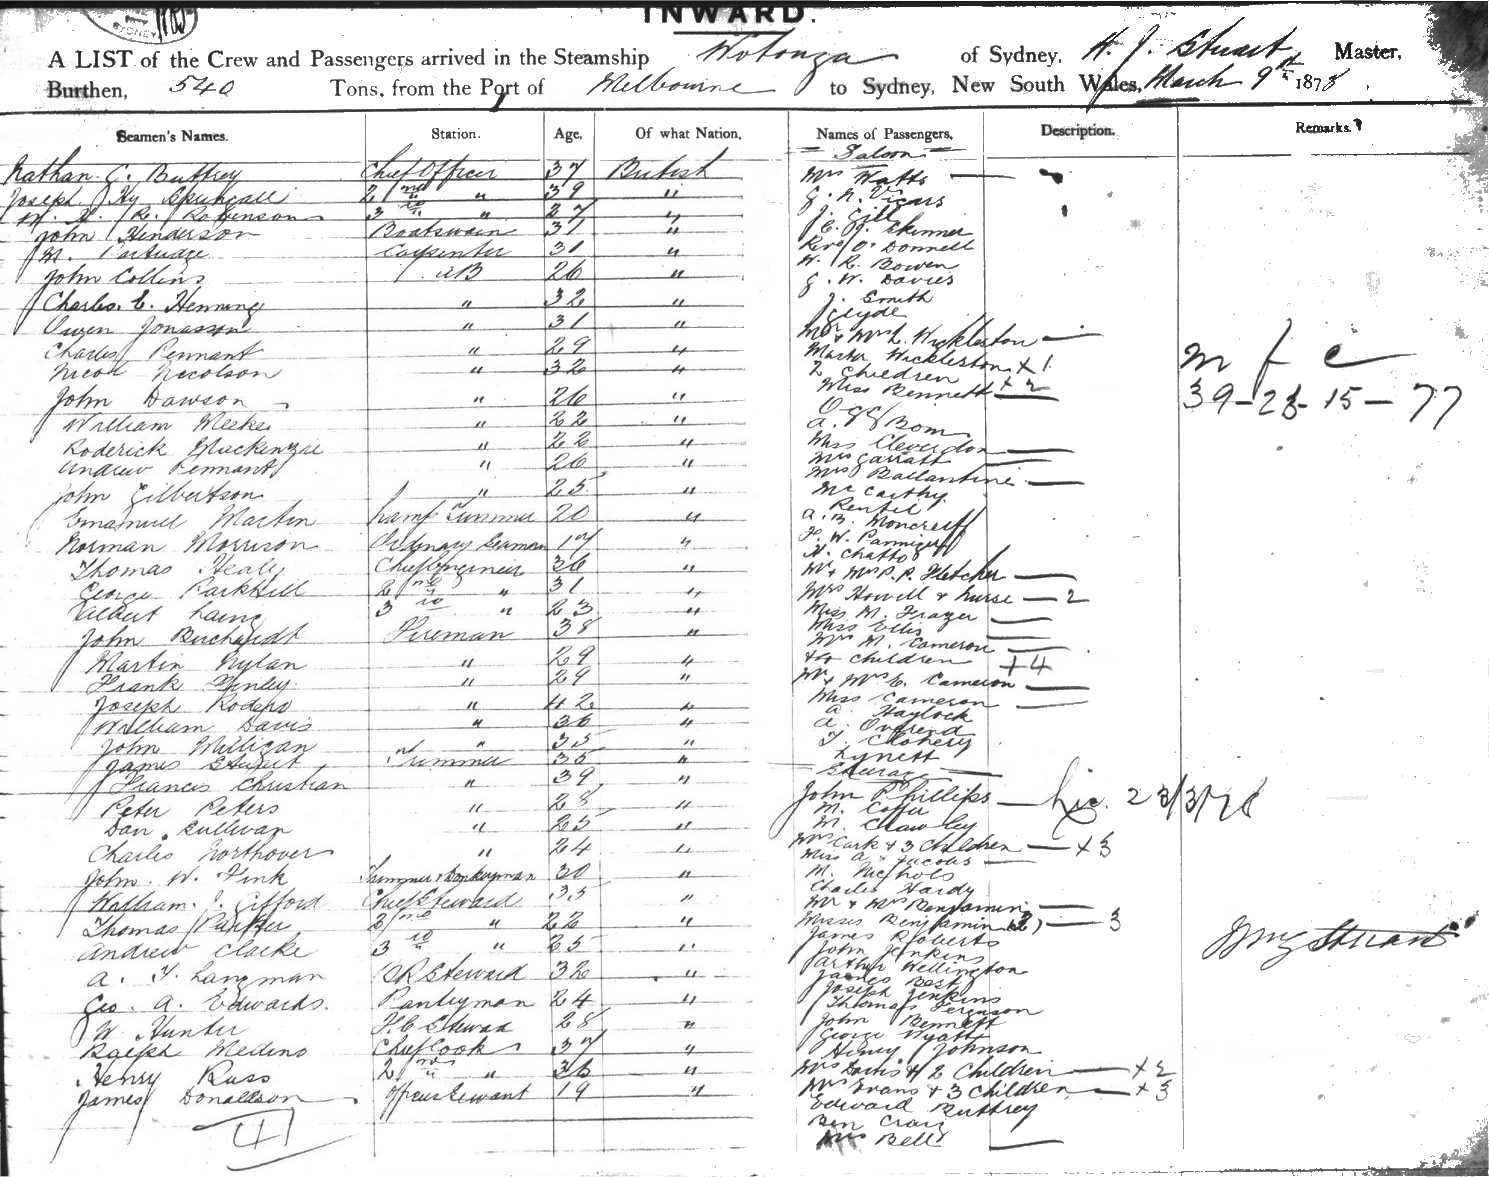 SYDNEY
INWARD.
A LIST of the Crew and Passengers arrived in the Steamship Wotonga of Sydney, H. J. Stuart Master,
Burthen, 540 Tons, from the Port of Melbourne to Sydney, New South Wales, March 9th 1878.
Seamen's Names. Station. Age, Of what Nation, Names of Passengers, Description. Remarks.
Saloon
Nathan C. Buttrey Chief Officer 37 British
Joseph Hy 2nd " 39 "
W. H. R. Robinson 3rd " 27 "
John Henderson Boatswain 31 "
M. Partridge Carpenter 31 "
John Collins AB 26 "
Charles. E. Henning " 32 "
Owen Jonasson " 31 "
Charles Pennant " 29 "
Nicol Nicolson " 32 "
John Dawson " 26 "
William Meeks " 22 "
Roderick Mackenzie " 22 "
Andrew Pennant " 26 "
John Gilbertson " 25 "
Emanuel Martin Lamp Trimmer 20 "
Norman Morrison Ordinary Seaman 17 "
Thomas Healy Chief Engineer 36 "
George Parkhill 2nd " 31 "
Albert Laing 3rd " 23 "
John Fireman 38 "
Martin Nylan " 29 "
Frank Finley " 29 "
Joseph Rodgers " 42 "
William Davis " 36 "
John Milligan " 35 "
James Stuart Trimmer 35 "
Francis Christian " 39 "
Peter Peters " 28 "
Dan Sullivan " 25 "
Charles Northover " 24 "
John. W. Fink Trimmer & Donkeyman 30 "
William. J. Gifford Chief Steward 35 "
Thomas Parker 2nd " 22 "
Andrew Clarke 3rd " 25 "
A. T. Langman Steward 32 "
Geo. A. Edwards. Pantryman 24 "
W Hunter F.C Steward 28 "
Ralph Medino Chief Cook 37 "
Henry Russ 2nd " 36 "
James Donaldson Officers Servant 19 "
41
Mrs Watts
G. N. Vicars
J. Gill
C. J. Skinner
Revd O'Donnell
W. R. Bowen
G. W. Davies
J. Smith
Clyde
Mr & Mrs L. Wickleston
Master Wickleston x 1
2 Children x 2
Miss Bennett
Ogg
A. Bom
Miss Cleverdon
Mrs Garratt
Mrs Ballantine
McCarthy
Rentil
A. B. Moncrieff
F. W. Pannigen
H. Chatto
Mr & Mrs P. R. Fletcher
Mrs Howell & nurse 2
Miss M. Frazer
Miss Ellis
Mrs M. Cameron
& 4 children + 4
Mr & Mrs C. Cameron
Miss Cameron
A Haylock
A. Overend
T. Clohery
Lynett
Steerage
John Phillips
M. Coffee
M. Crawley
Mrs Cark & 3 Children x 3
Miss A. Jacobs
M. Nichols
Charles Hardy
Mr & Mrs Benjamin
Misses Benjamin (2) 3
James Roberts
John Jenkins
Arthur Wellington
James Best
Joseph Jenkins
Thomas Ferguson
John Bennett
George Wyatt
Henry Johnson
Mrs Davis & 2 Children x 2
Mrs Evans & 3 Children x 3
Edward Buttrey
Ben Craig
Mrs Bell
m f c
39-23-15-77
23/3/78
Stuart